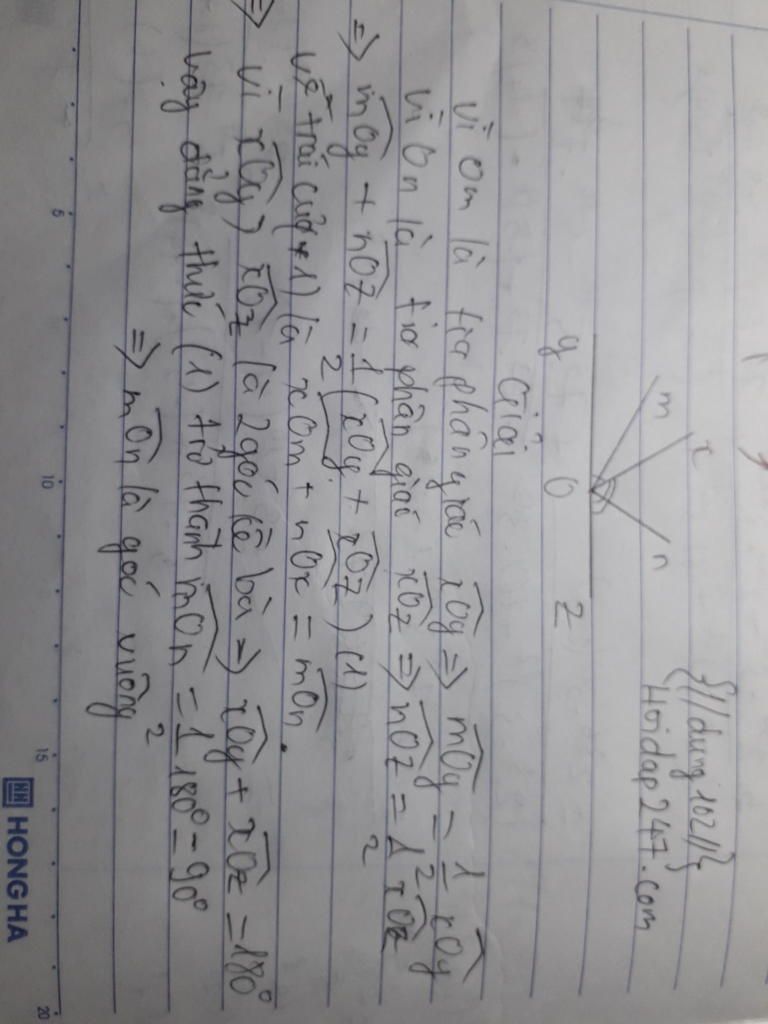 {//dung102//}
Hoidap247.com
m x n
y O z
Giải
vì Om là tia phân giác xOy => mOy = 1/2 xOy
vì On là tia phân giác xOz => nOz = 1/2 xOz
=> mOy + nOz = 1/2 (xOy + xOz) (1)
vế trái của (1) là xOm + nOx = mOn.
=> vì xOy, xOz là 2 góc kề bù => xOy + xOz = 180°
vậy đẳng thức (1) trở thành mOn = 1/2 180° = 90°
=> mOn là góc vuông
5 10 15 20
HH HONG HA